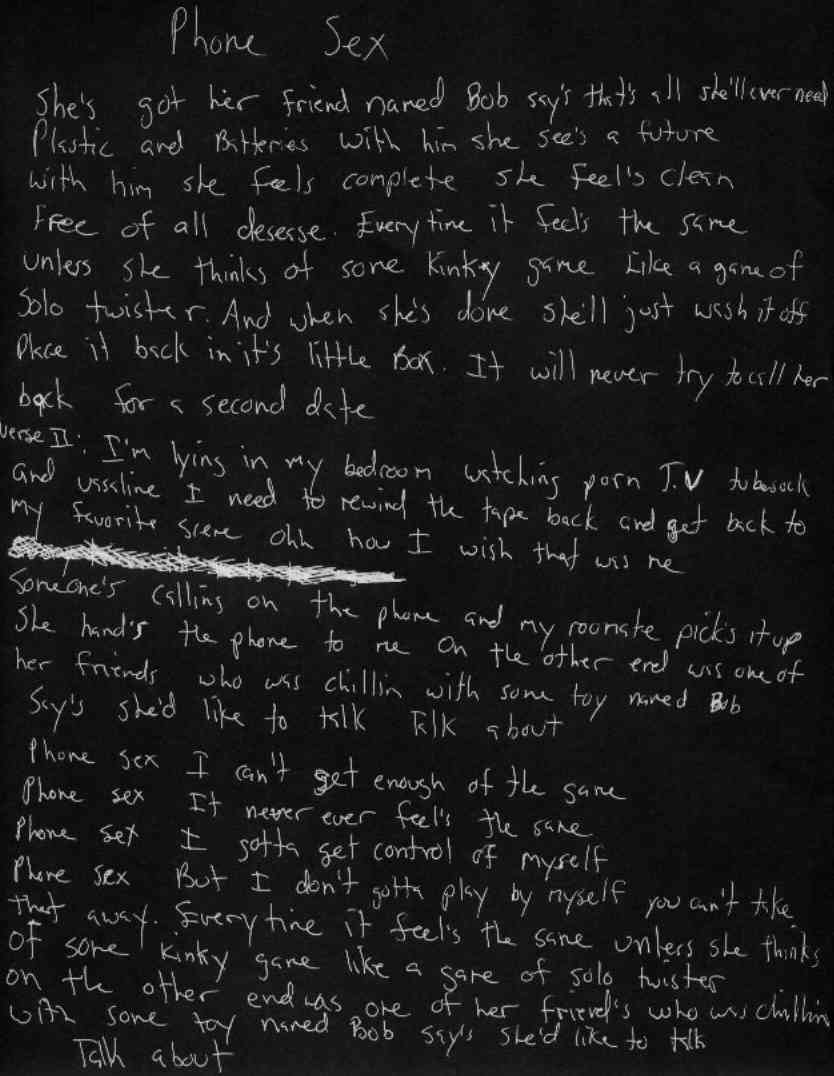 Phone Sex
She's got her friend named Bob say's that's all she'll ever need
Plastic and Batteries with him she see's a future
with him she feels complete she feel's clean
Free of all desesse. Every time it feel's the same
unless she thinks of some kinky game Like a game of
Solo twister. And when she's done she'll just wash it off
Place it back in it's little Box. It will never try to call her
back for a second date
Verse II: I'm lying in my bedroom watching porn T.V tubesock
and vassline I need to rewind the tape back and get back to
my favorite scene ohh how I wish that was me
Someone's calling on the phone and my roomate pick's it up
She hand's the phone to me on the other end was one of
her friends who was chillin with some toy named Bob
Say's she'd like to talk Talk about
Phone sex I can't get enough of the game
Phone sex It never ever feel's the same
Phone sex I gotta get control of myself
Phone sex But I don't gotta play by myself you can't take
that away. Everytime it feel's the same unless she thinks
of some kinky game like a game of solo twister
on the other end was one of her friend's who was chillin
with some toy named Bob say's she'd like to talk
Talk about